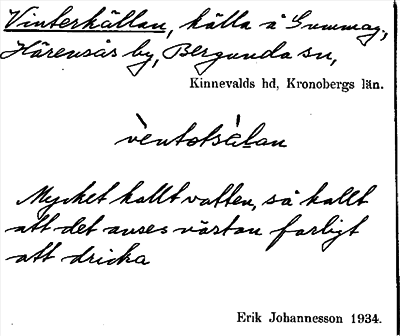 Vinterkällan, källa å Gummag,
Härensås by, Bergunda sn,
Kinnevalds hd, Kronobergs län.
Mycket kallt vatten, så kallt
att det anses nästan farligt
att dricka
Erik Johannesson 1934.